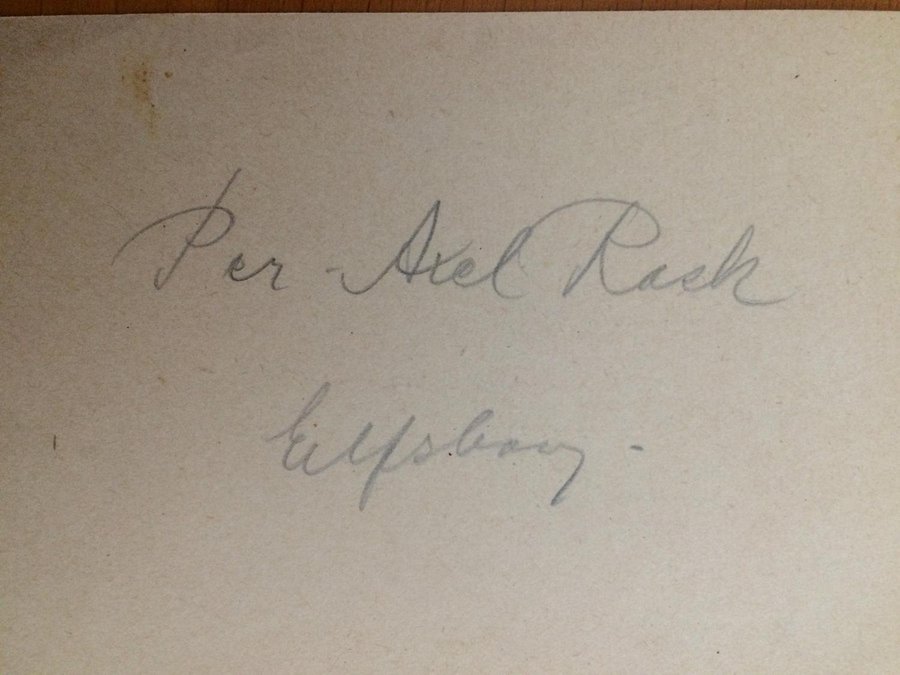 Per-Axel Rask
Elfsborg.